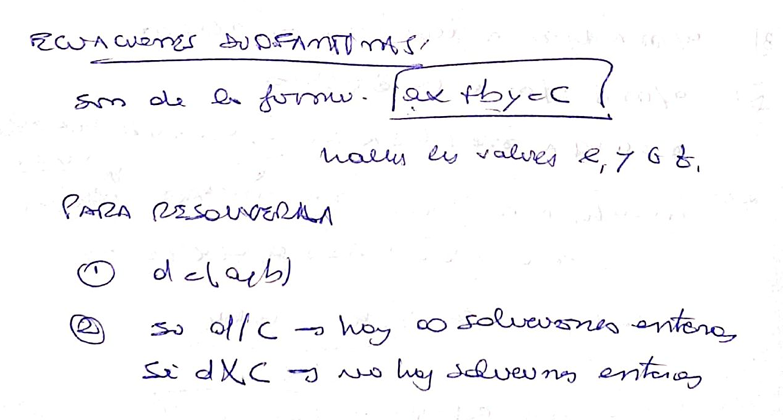 ECUACIONES DIOFANTINAS:
son de la forma. ax + by = c
hallar los valores
PARA RESOLVERLA
① d = (a,b)
② si d/c → hay ∞ soluciones enteras
si d∤c → no hay soluciones enteras